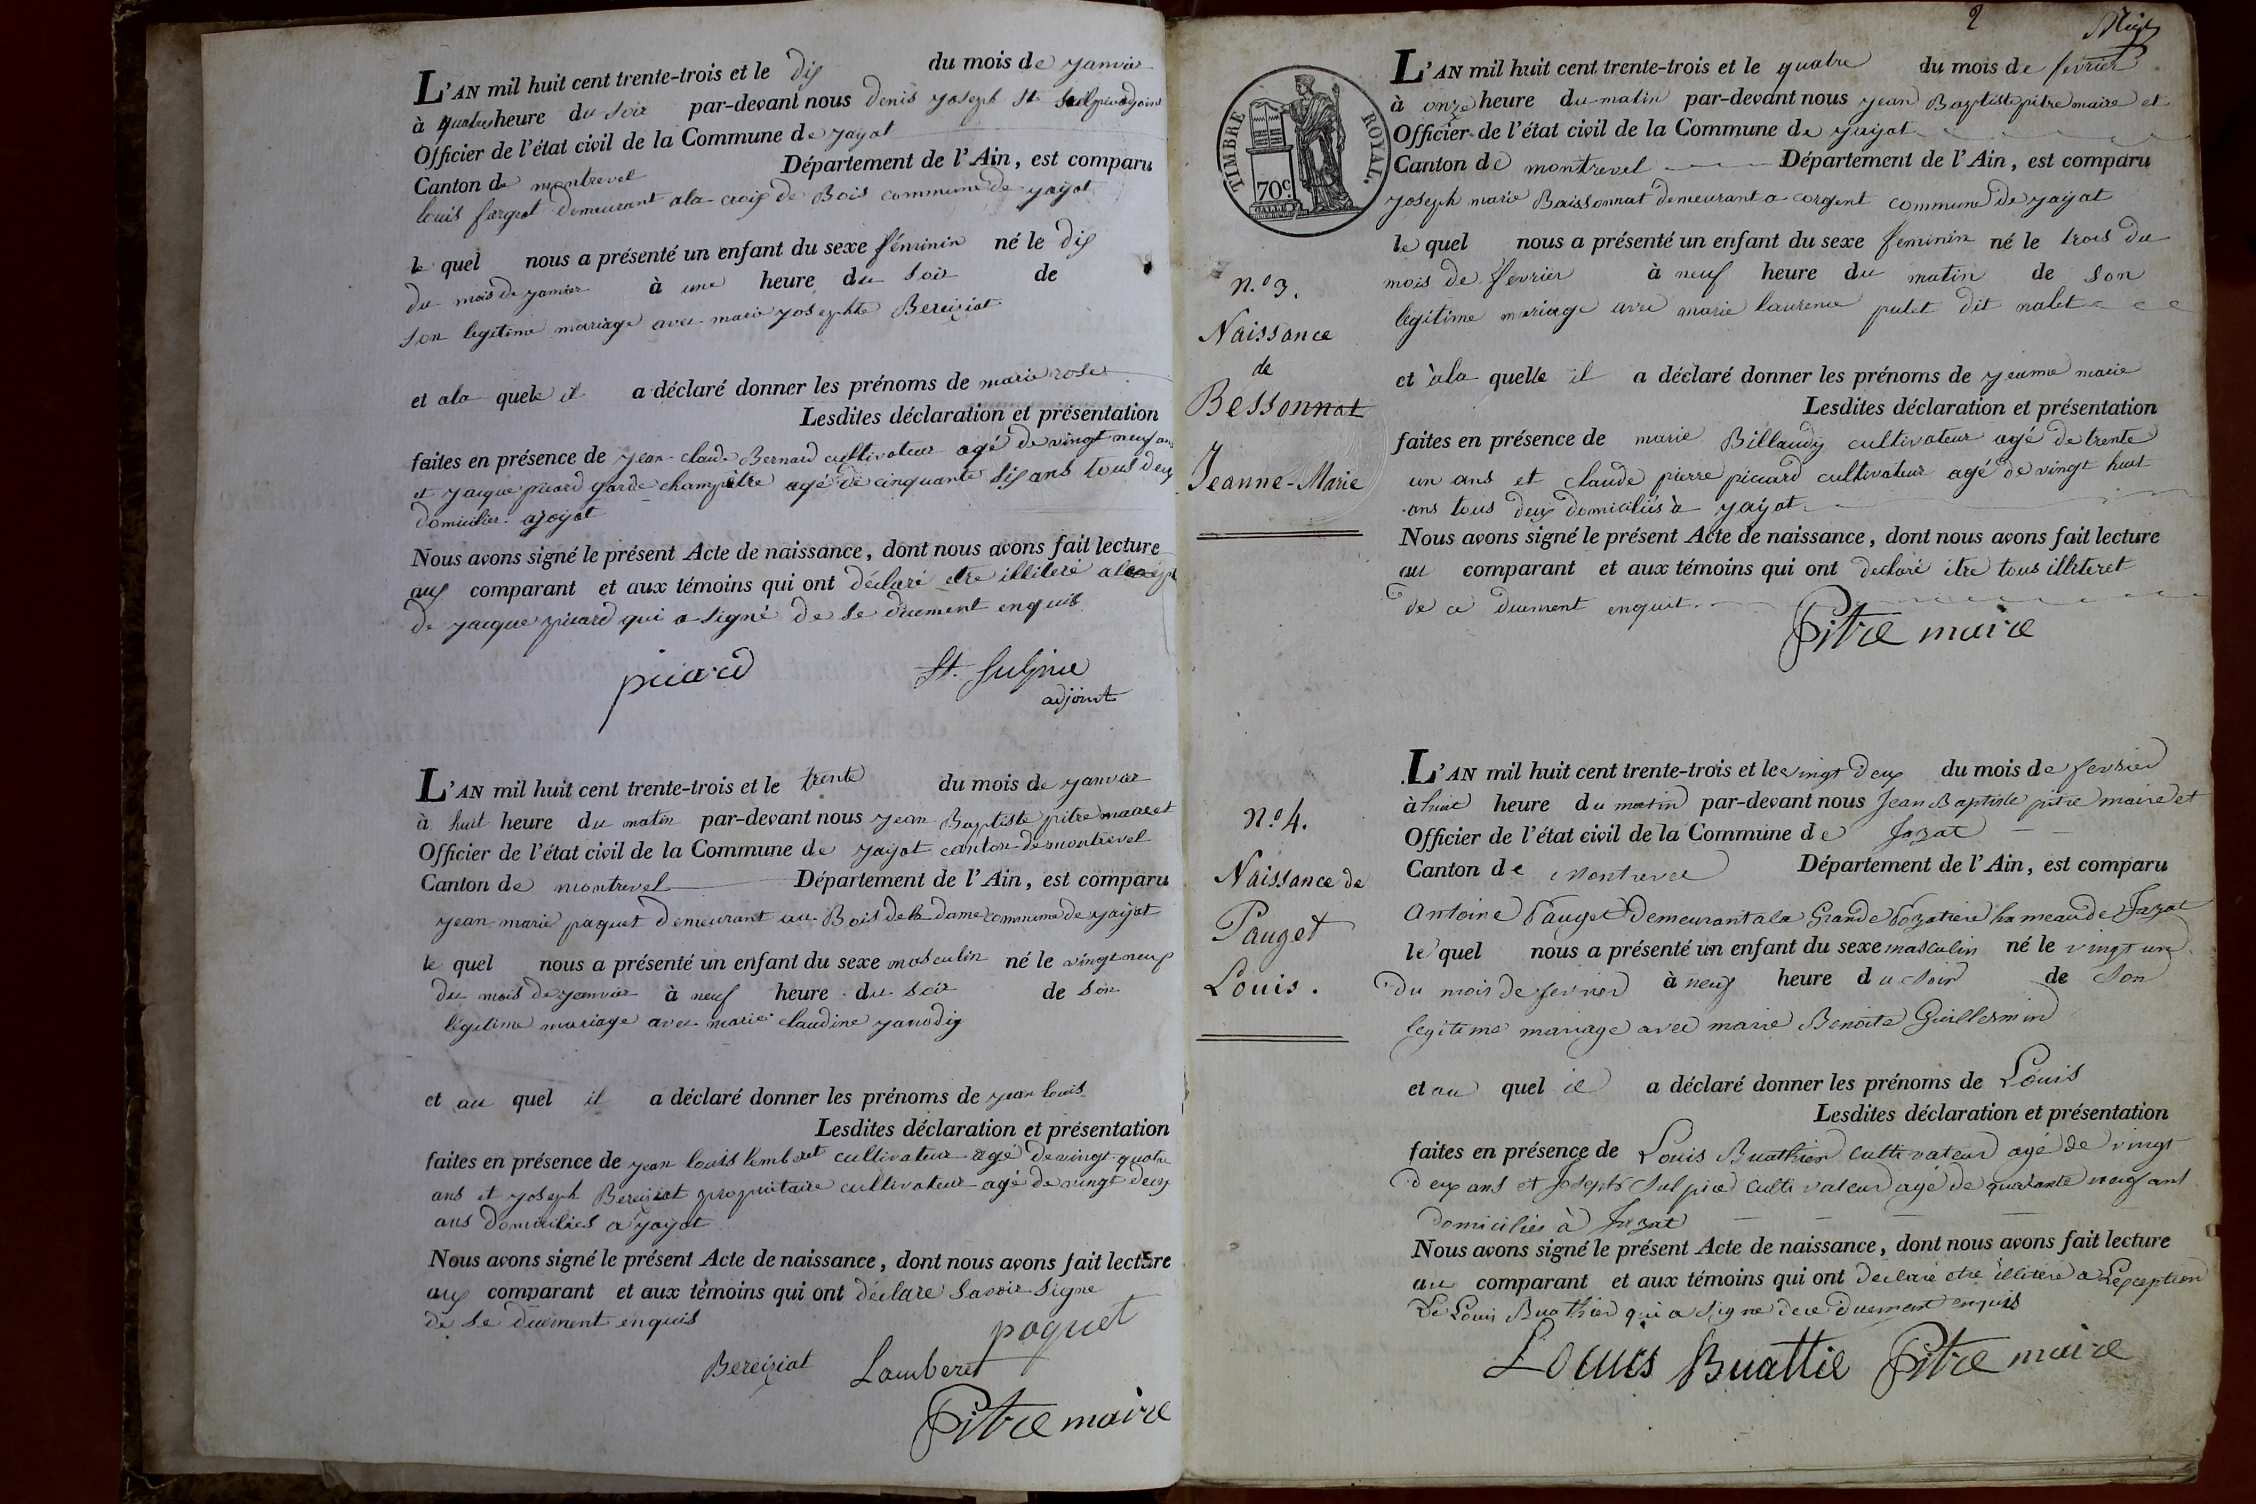 L'AN mil huit cent trente-trois et le dix du mois de janvier
à quatre heure du soir par-devant nous denis joseph st sulpice adjoint
Officier de l'état civil de la Commune de jayat
Canton de montrevel Département de l'Ain, est comparu
louis fargeot demeurant a la croix de Bois commune de jayat
le quel nous a présenté un enfant du sexe féminin né le dix
du mois de janvier à une heure du soir de
son legitime mariage avec marie josephte Bereiziat
et a la quele il a déclaré donner les prénoms de marie rose
Lesdites déclaration et présentation
faites en présence de jean claude Bernard cultivateur agé de vingt neuf ans
et jacque picard garde champêtre agé de cinquante six ans tous deux
domicilier a jayat
Nous avons signé le présent Acte de naissance, dont nous avons fait lecture
aux comparant et aux témoins qui ont déclaré etre illiteré
de jacque picard qui a signé de se duement enquis
picard St. Sulpice
adjoint
L'AN mil huit cent trente-trois et le trente du mois de janvier
à huit heure du matin par-devant nous jean Baptiste pitre maire et
Officier de l'état civil de la Commune de jayat canton de montrevel
Canton de montrevel Département de l'Ain, est comparu
jean marie paquet demeurant au Bois de la dame commune de jayat
le quel nous a présenté un enfant du sexe masculin né le vingt neuf
du mois de janvier à neuf heure du soir de son
légitime mariage avec marie claudine
et au quel il a déclaré donner les prénoms de jean louis
Lesdites déclaration et présentation
faites en présence de jean louis lemberet cultivateur agé de vingt quatre
ans et joseph Bereiziat propriétaire cultivateur agé de vingt deux
ans domiciliés a jayat
Nous avons signé le présent Acte de naissance, dont nous avons fait lecture
aux comparant et aux témoins qui ont déclaré savoir signe
de se duement enquis
paquet
Bereiziat Lamberet
Pitre maire
2
TIMBRE ROYAL.
70c.
L'AN mil huit cent trente-trois et le quatre du mois de fevrier
à onze heure du matin par-devant nous jean Baptiste pitre maire et
Officier de l'état civil de la Commune de jayat
Canton de montrevel Département de l'Ain, est comparu
joseph marie Baissonnat demeurant a corgent commune de jayat
le quel nous a présenté un enfant du sexe feminin né le trois du
mois de fevrier à neuf heure du matin de son
légitime mariage avec marie laurence pulet dit nalet
et à la quelle il a déclaré donner les prénoms de jeanne marie
Lesdites déclaration et présentation
faites en présence de marie Billaudy cultivateur agé de trente
un ans et claude pierre piccard cultivateur agé de vingt huit
ans tous deux domiciliés à jayat
Nous avons signé le présent Acte de naissance, dont nous avons fait lecture
au comparant et aux témoins qui ont declaré etre tous illiteret
de ce duement enquit
Pitre maire
N.º 3.
Naissance
de
Bessonnat
Jeanne-Marie
L'AN mil huit cent trente-trois et le vingt deux du mois de fevrier
à huit heure du matin par-devant nous Jean Baptiste pitre maire et
Officier de l'état civil de la Commune de Jayat
Canton de Montrevel Département de l'Ain, est comparu
Antoine Pauget demeurant a la Grande hameau de Jayat
le quel nous a présenté un enfant du sexe masculin né le vingt un
du mois de fevrier à neuf heure du soir de son
legitime mariage avec marie Benoite Guillermin
et au quel il a déclaré donner les prénoms de Louis
Lesdites déclaration et présentation
faites en présence de Louis Buathier cultivateur agé de vingt
deux ans et Joseph Sulpice cultivateur agé de quarante neuf ans
domiciliés à Jayat
Nous avons signé le présent Acte de naissance, dont nous avons fait lecture
au comparant et aux témoins qui ont declaré etre illiteré a L'exception
De Louis Buathier qui a signe de ce duement enquis
Louis Buattie Pitre maire
N.º 4.
Naissance de
Pauget
Louis.